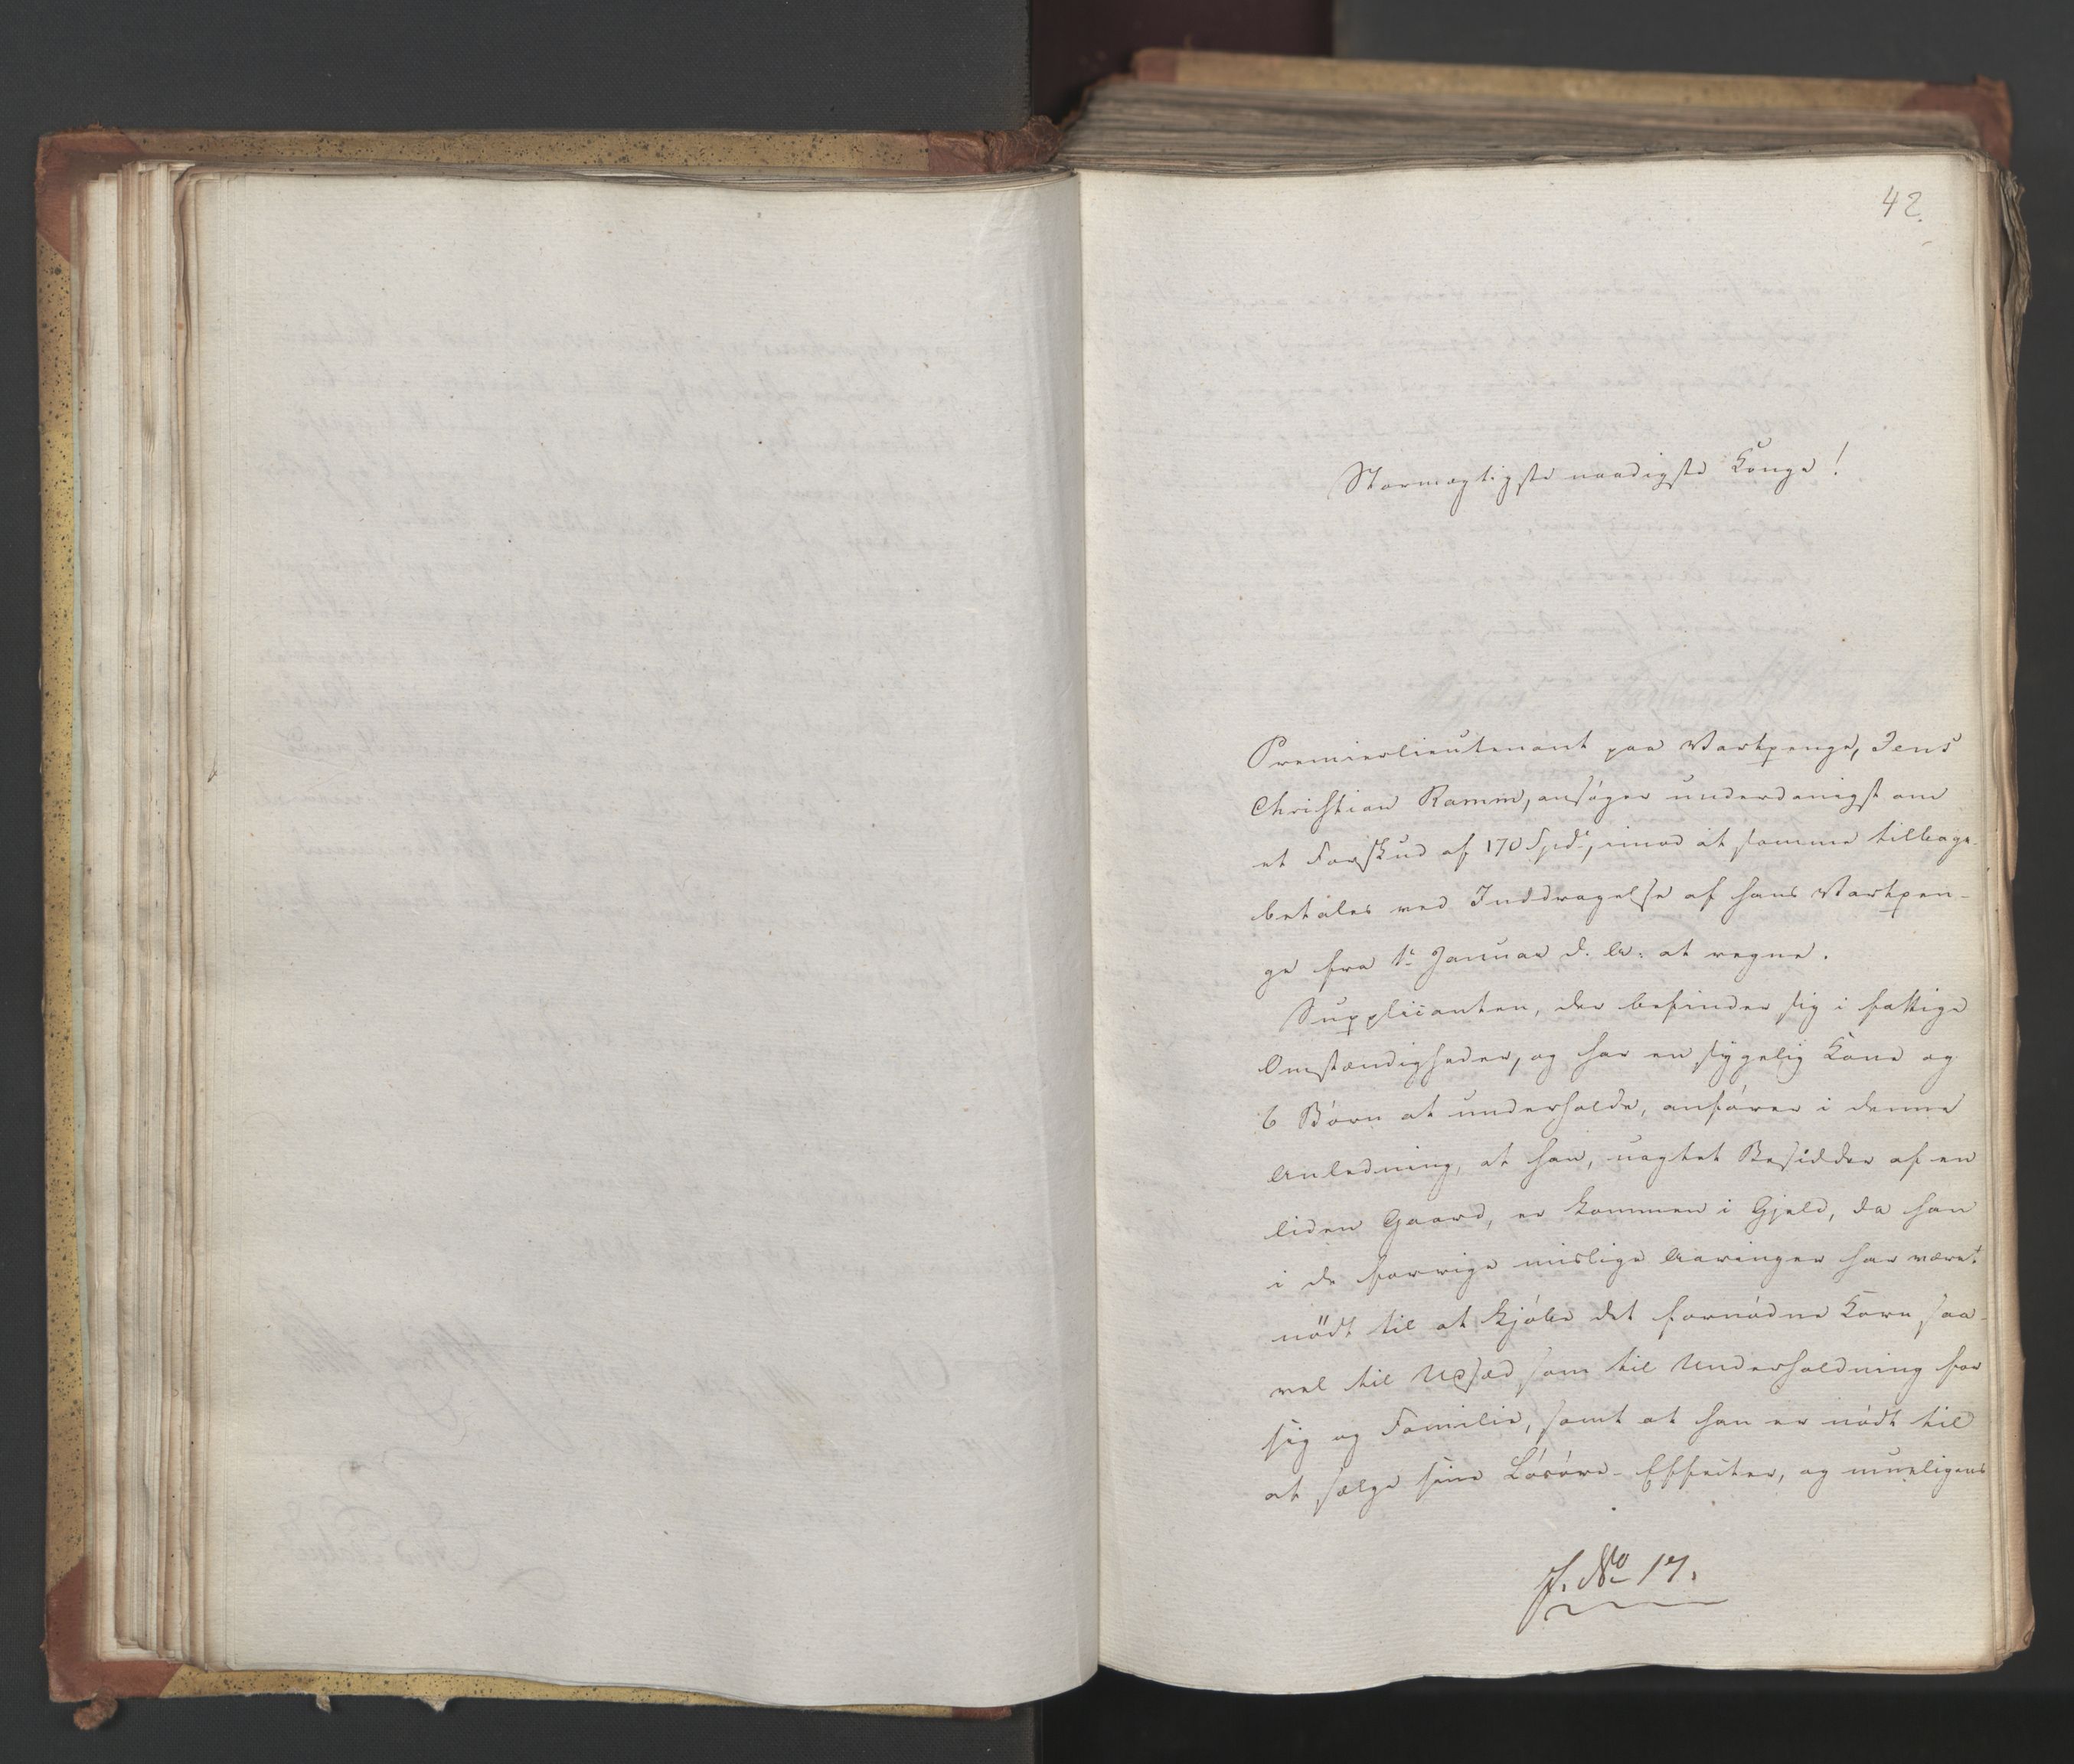 42.
Stormægtigste naadigste Konge!
Premierlieutenant paa Vartpenge, Jens
Christian Ramm, ansøger underdanigst om
et Forskud af 170 Spd, imod at samme tilbage-
betales ved Inddragelse af hans Vartpen-
ge fra 1ᵉ Januar d. A. at regne.
Supplicanten, der befinder sig i fattige
Omstændigheder, og har en sygelig Kone og
6 Børn at underholde, anfører i denne
Anledning, at han, uagtet Besidder af en
liden Gaard, er kommen i Gjeld, da han
i de forrige mislige Aaringer har været
nödt til at kjøbe det fornødne Korn saa-
vel til Udsæd som til Underholdning for
sig og Familie, samt at han er nödt til
at sælge sine Løsøre-Effecter, og mueligens
No 17.